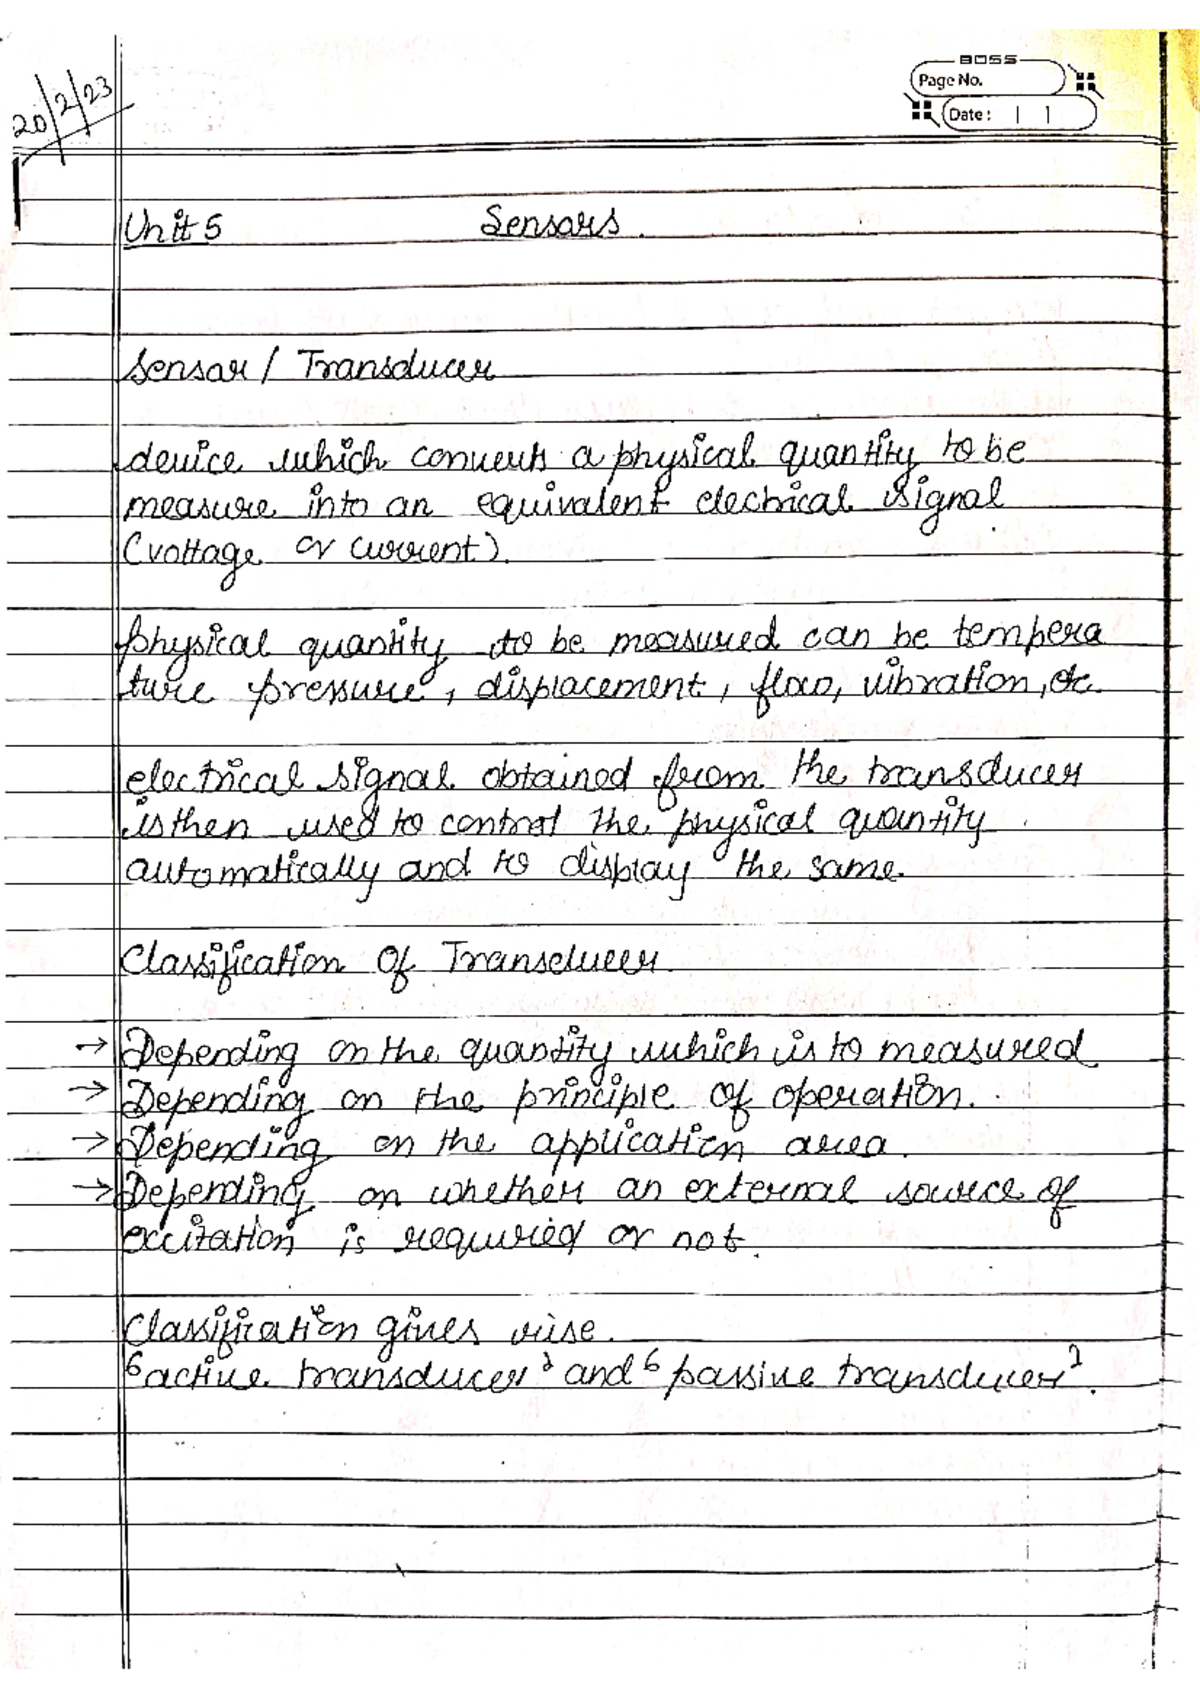 BOSS
Page No.
Date :
20/2/23
Unit 5 Sensors.
Sensor / Transducer
device which converts a physical quantity to be
measure into an equivalent electrical signal
(voltage or current).
physical quantity to be measured can be tempera
ture pressure, displacement, flow, vibration, etc.
electrical signal obtained from the transducer
is then used to control the physical quantity
automatically and to display the same.
Classification Of Transducer.
→ Depending on the quantity which is to measured
→ Depending on the principle of operation.
→ Depending on the application area.
→ Depending on whether an external source of
excitation is required or not.
Classification gives rise.
‘active transducer’ and ‘passive transducer’.